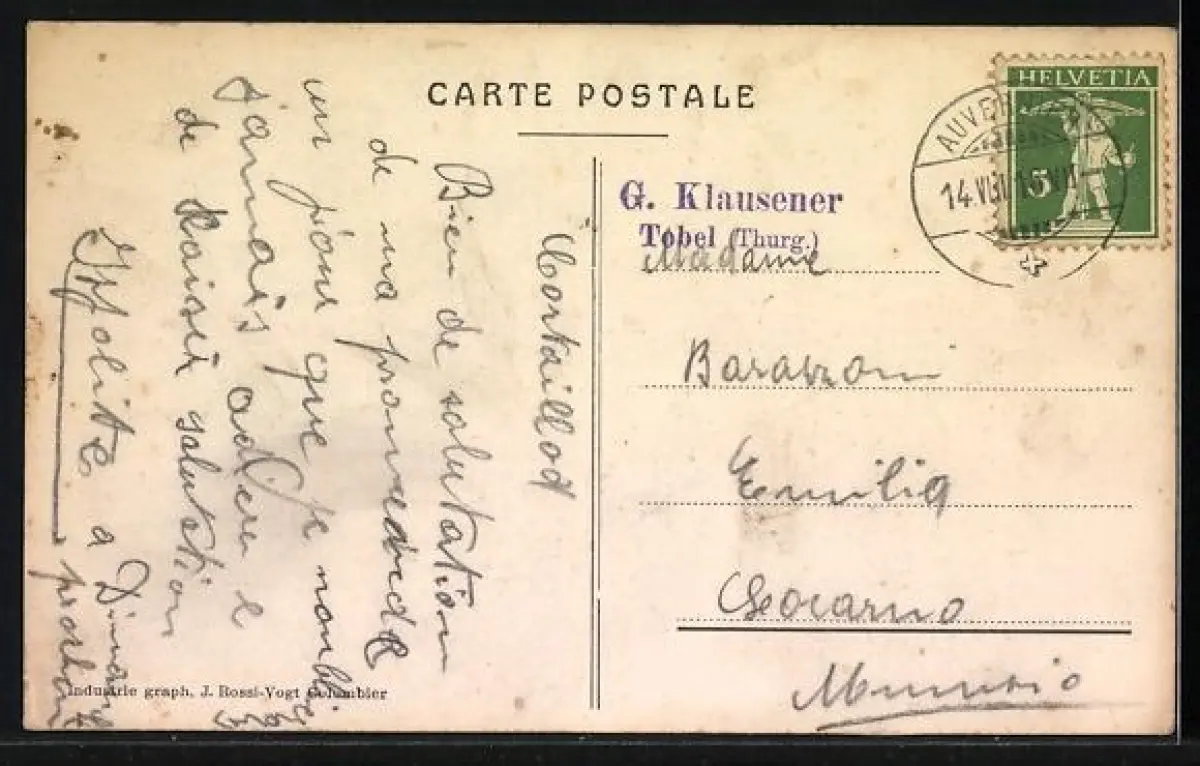 CARTE POSTALE
HELVETIA
5
AUVERNIER
14.VIII
G. Klausener
Tobel (Thurg.)
Madame
Barazzoni
Emilia
Locarno
Minusio
Cortaillod
Bien de salutation
de ma promenade
un jour que je
jamais adieu e
de salutation
Ippolite a
Industrie graph. J. Rossi-Vogt Colombier